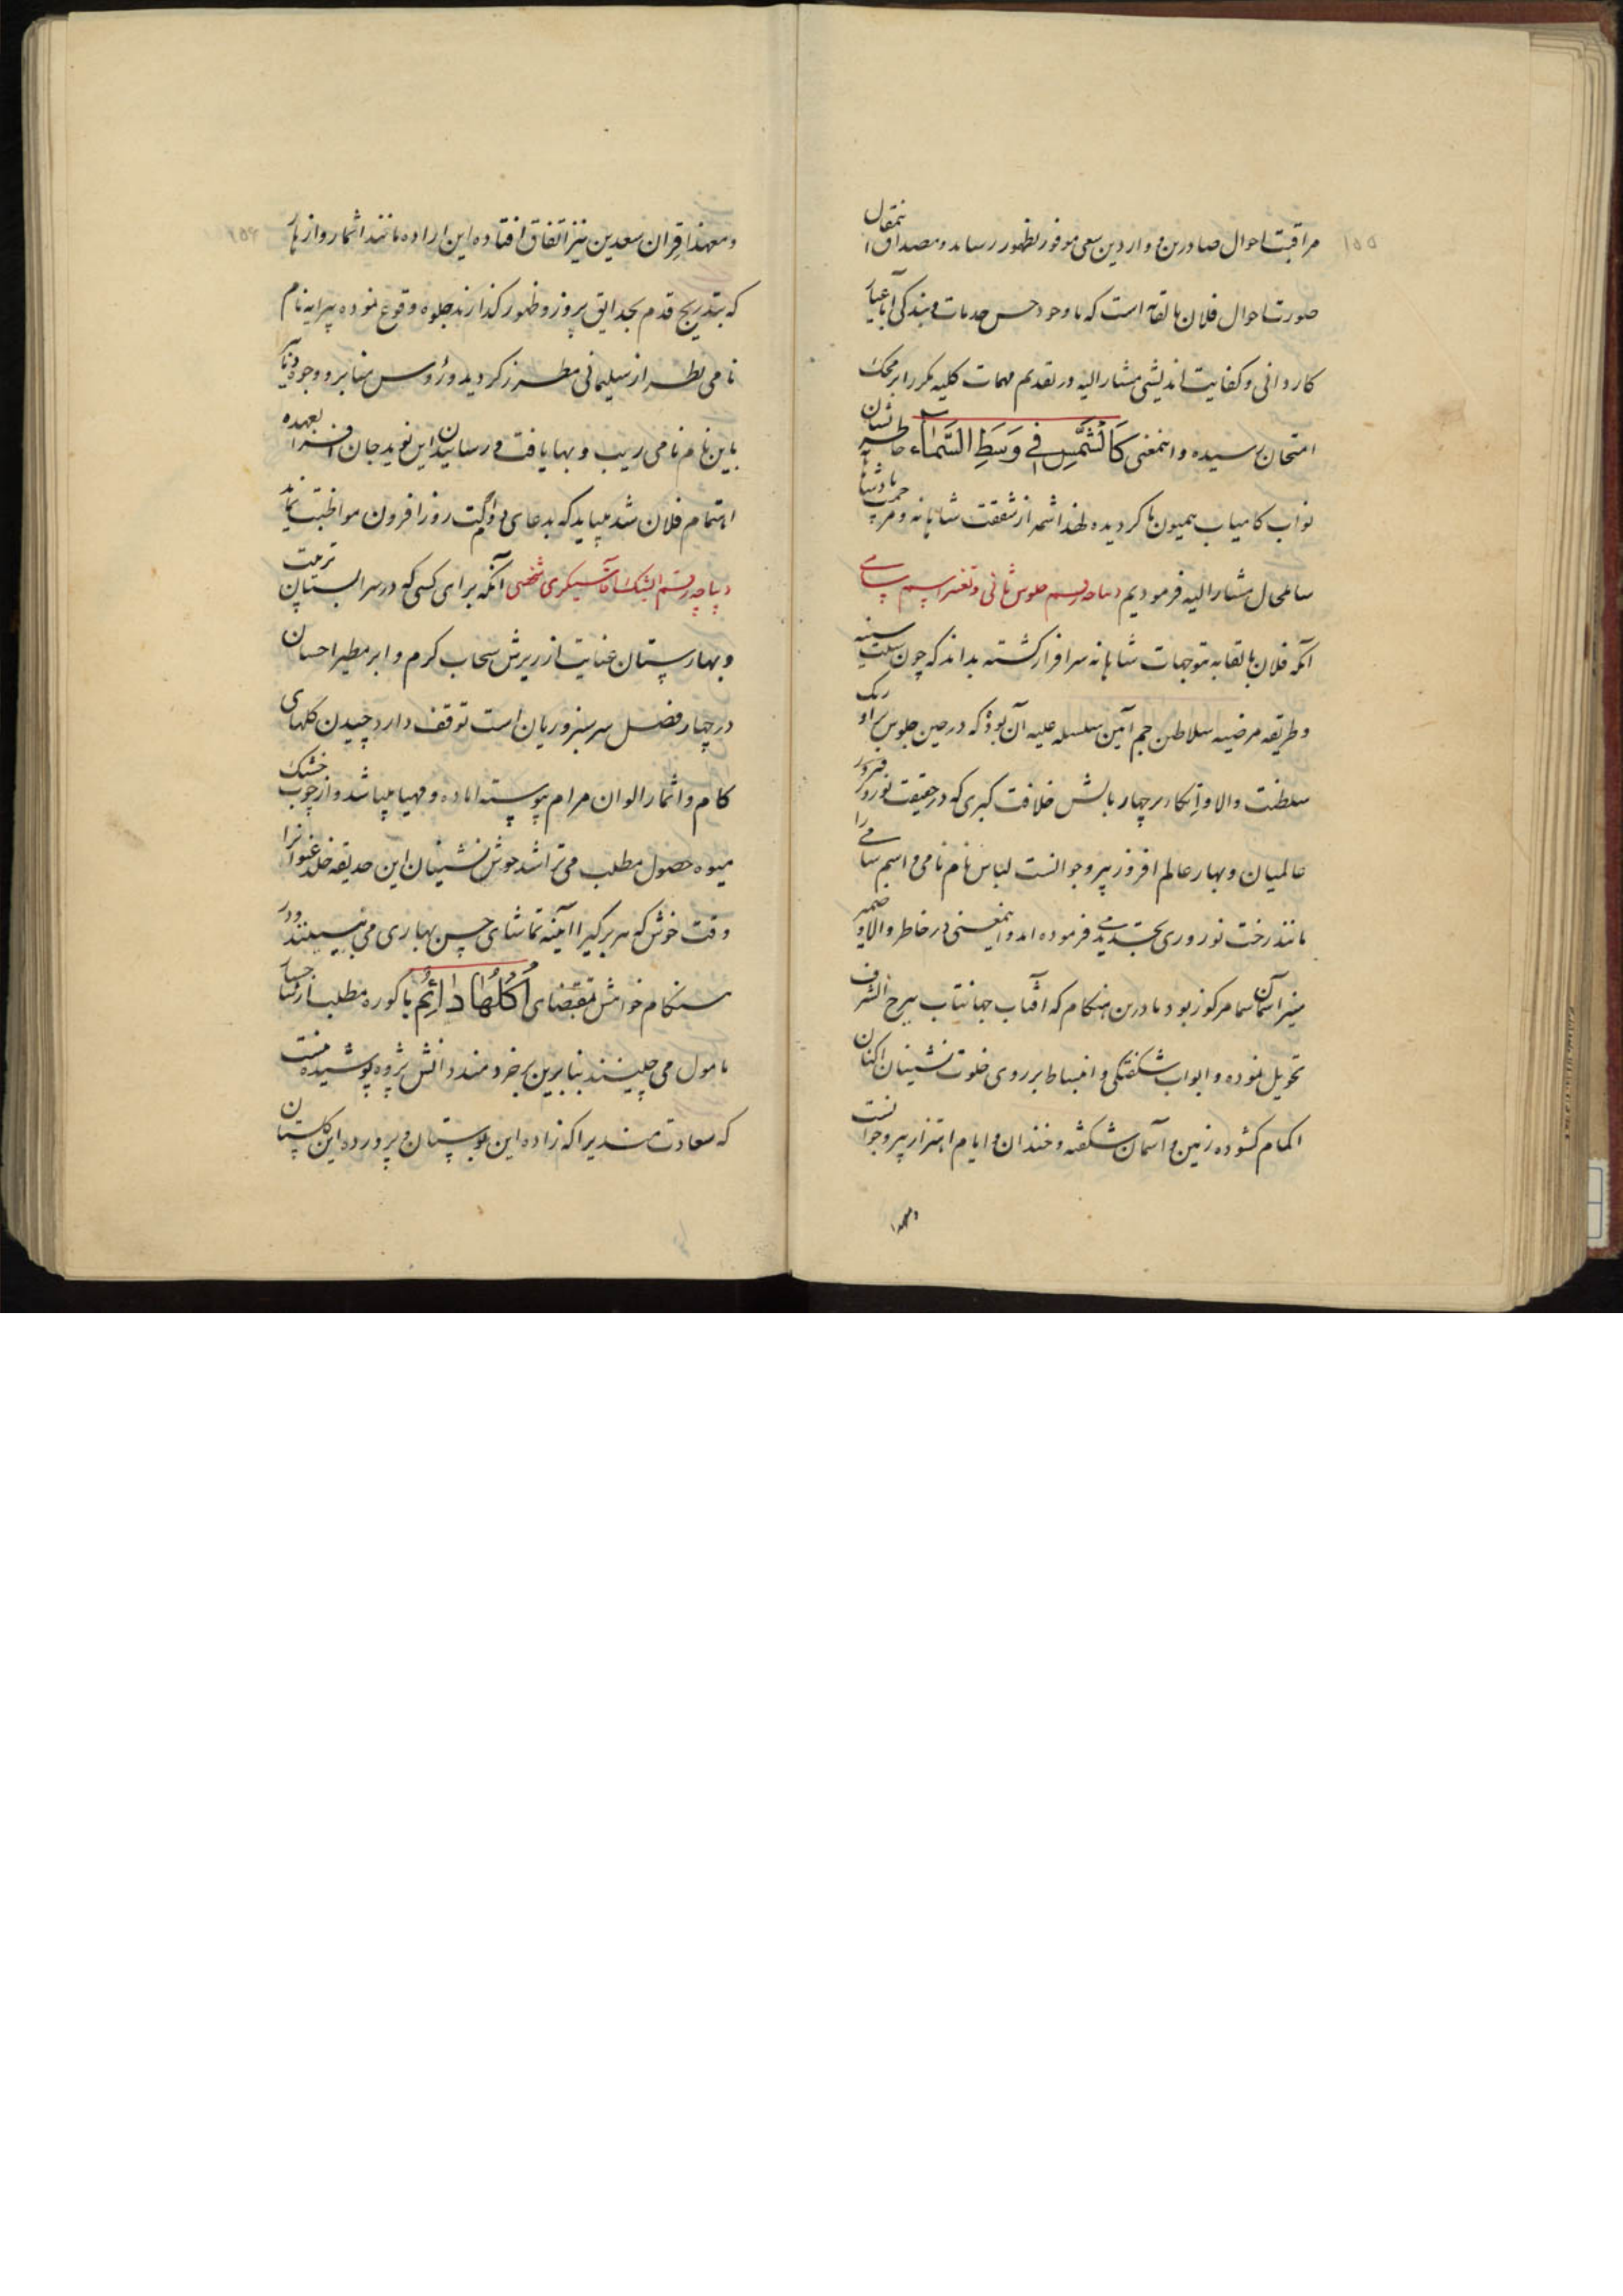 ۱۵۵
مراقبت احوال صادرین و واردین سعی موفور بظهور رساند و مصداق اینمقال
صورت احوال فلان بالقابه است که با وجود حسن خدمات و بندگی آبا عیار
کاردانی و کفایت اندیشی مشارالیه در تقدیم مهمات کلیه مکرر بر محک
امتحان رسیده و اینمعنی کَالشَّمسِ فِی وَسَطِ السَّمآء خاطر نشان
نواب کامیاب همیون ما گردیده لهذا شمه از شفقت شاهانه و مرحمت پادشاهانه
شامحال مشارالیه فرمودیم دیباچه رقم جلوس ثانی و تغییر اسم سامی
آنکه فلان بالقابه بتوجهات شاهانه سرافراز گشته بداند که چون سنت سنیه
و طریقه مرضیه سلاطین جم آیین سلسله علیه آن بود که در حین جلوس بر اورنگ
سلطنت والا و اتکا بر چهار بالش خلافت کبری که در حقیقت نوروز فیروز
عالمیان و بهار عالم افروز پیر و جوانست لباس نام نامی و اسم سامی را
مانند رخت نوروزی تجدید می فرموده اند و اینمعنی در خاطر والا و ضمیر
منیر آسمان سا مرکوز بود تا درین هنگام که آفتاب جهانتاب ببرج الشرف
تحویل نموده و ابواب شکفتگی و انبساط بر روی خلوت نشینان اکنان
اکمام گشوده زمین و آسمان شکفته و خندان و ایام اهتزاز پیر و جوانست
و معهذا
و معهذا قران سعدین نیز اتفاق افتاده این اراده مانند اثمار و ازهار
که بتدریج قدم بحدایق بروز و ظهور گذارند جلوه وقوع نموده پیرایه نام
نامی بطراز سلیمانی مطرز گردید و رؤس منابر و وجوه دنانیر
باین نام نامی زیب و بها یافت و رسانیدن این نوید جان افزا بعهده
اهتمام فلان شد میباید که بدعای دولت روزافزون مواظبت نماید
دیباچه رقم ایشیک آقاسیگری شخصی آنکه برای کسی که در سرابستان تربیت
و بهارستان عنایت از ریزش سحاب کرم و ابر مطیر احسان
در چهار فصل سرسبز و ریان است توقف دارد چیدن گلهای
کام و اثمار الوان مرام پیوسته اماده و مهیا میباشد و از چوب خشک
میوه حصول مطلب می تراشد خوش نشینان این حدیقه خلد عنوانرا
وقت خوش که هر برگیرا آئینه تماشای چمن بهاری می بینند و در
هنگام خواهش بمقتضای اُکُلُها دائِمٌ باکوره مطلب از شاخسار
مامول می چینند بنابرین بر خردمند دانش پژوه پوشیده نیست
که سعادتمندیرا که زاده این بوستان و پرورده این گلستان